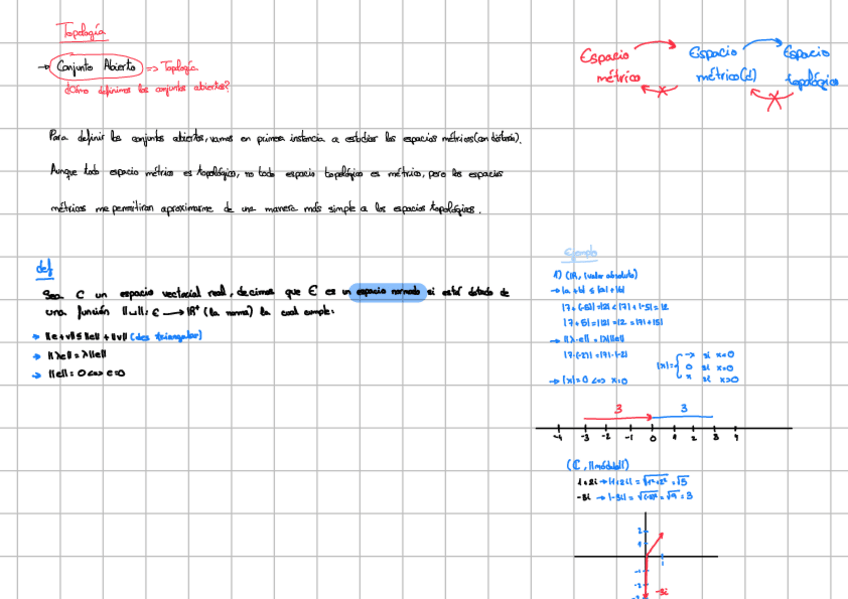 Topología
→ Conjunto Abierto => Toplogía
¿Cómo definimos los conjuntos abiertos?
Espacio métrico
Espacio métrico(d)
Espacio topológico
Para definir los conjuntos abiertos, vamos en primera instancia a estudiar los espacios métricos(con distancia).
Aunque todo espacio métrico es topológico, no todo espacio topológico es métrico, pero los espacios
métricos me permitiran aproximarme de una manera más simple a los espacios topológicos.
def
Sea E un espacio vectorial real, decimos que E es un espacio normado si está dotado de
una función ||u||: E → IR⁺ (la norma) la cual cumple:
→ ||e+v|| ≤ ||e|| + ||v|| (des triangular)
→ ||λe|| = λ||e||
→ ||e|| = 0 <=> e=0
Ejemplo
1) (IR, |valor absoluto|)
→ |a+b| ≤ |a|+|b|
|7+(-5)|=|2| < |7|+|-5|=12
|7+5|=|12|=12=|7|+|5|
→ ||λ·e||=|λ|||e||
|7·(-2)|=|7|·|-2|
→ |x|=0 <=> x=0
|x|= { -x si x<0
0 si x=0
x si x>0
3 3
-4 -3 -2 -1 0 1 2 3 4
(ℂ, ||módulo||)
1+2i → |1+2i| = √1²+2² = √5
-3i → |-3i| = √(-3)² = √9 = 3
2
1
1
-1
-2
-3
-3i